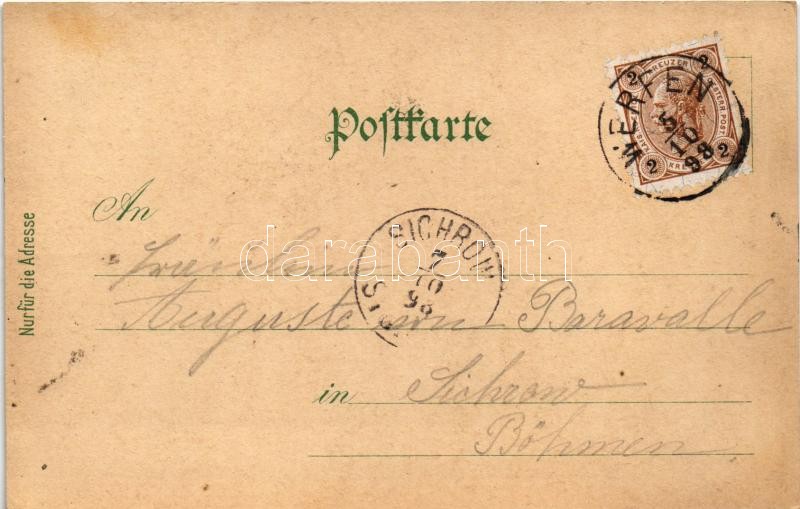 Postkarte
2 KREUZER 2
2 KREUZER 2
WERFEN
5/10
98
An
SICHROW
7/10
98
Fräulein
Auguste von Baravalle
in Sichrow
Böhmen
Nur für die Adresse
darabanth